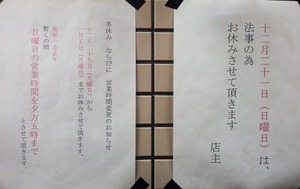 十二月二十一日（日曜日）は、
法事の為
お休みさせて頂きます
店主
冬休み ならびに 営業時間変更のお知らせ
十二月二十九日（月曜日）から
一月五日（月曜日）までお休みさせて頂きます。
一月より
暫くの間
日曜日の営業時間を夕方五時まで
とさせて頂きます。